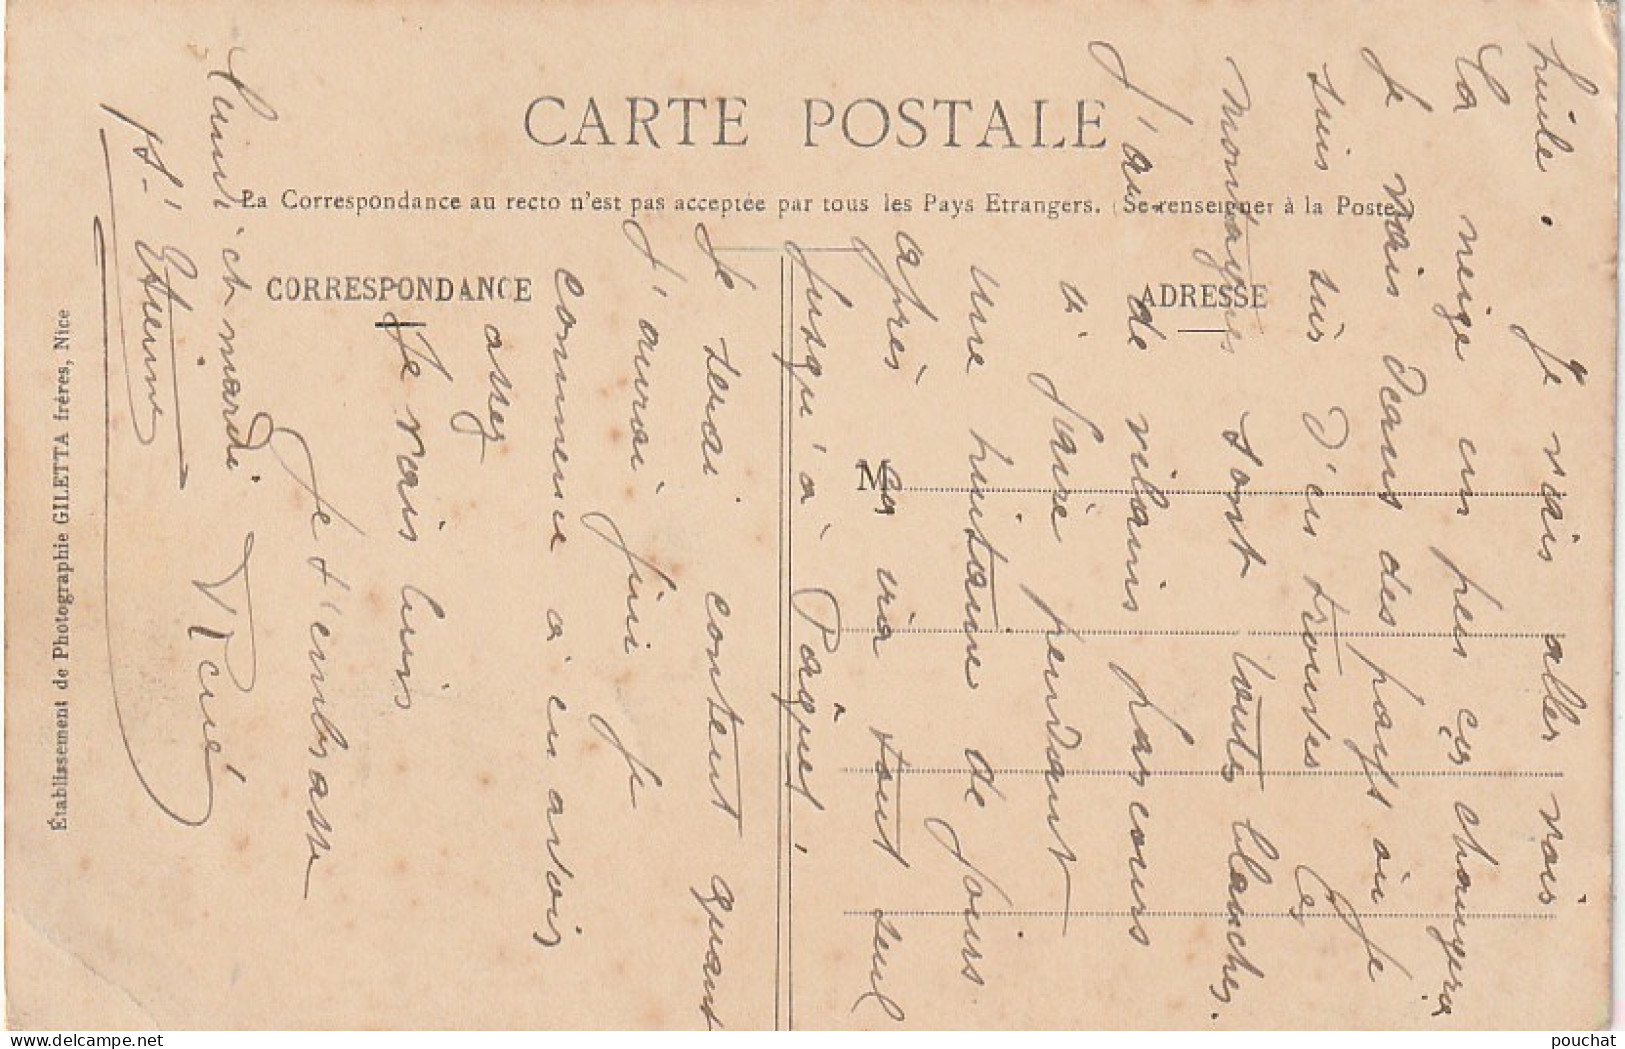 CARTE POSTALE
La Correspondance au recto n'est pas acceptée par tous les Pays Etrangers. (Se renseigner à la Poste)
CORRESPONDANCE
ADRESSE
M
Établissement de Photographie GILETTA frères, Nice
huile. Je vais aller voir
la neige un peu ça changera
Je vais dans des pays où je
suis sûr d'en trouver les
montagnes sont toutes blanches.
J'ai de vilains parcours
à faire pendant
une huitaine de jours
après ça ira tout seul
jusqu'à Pâques.
Je serai content quand
J'aurai fini je
commence à en avoir
assez
Je vais lundi
Je t'embrasse
René
Lundi et mardi
St-Etienne
pouchat